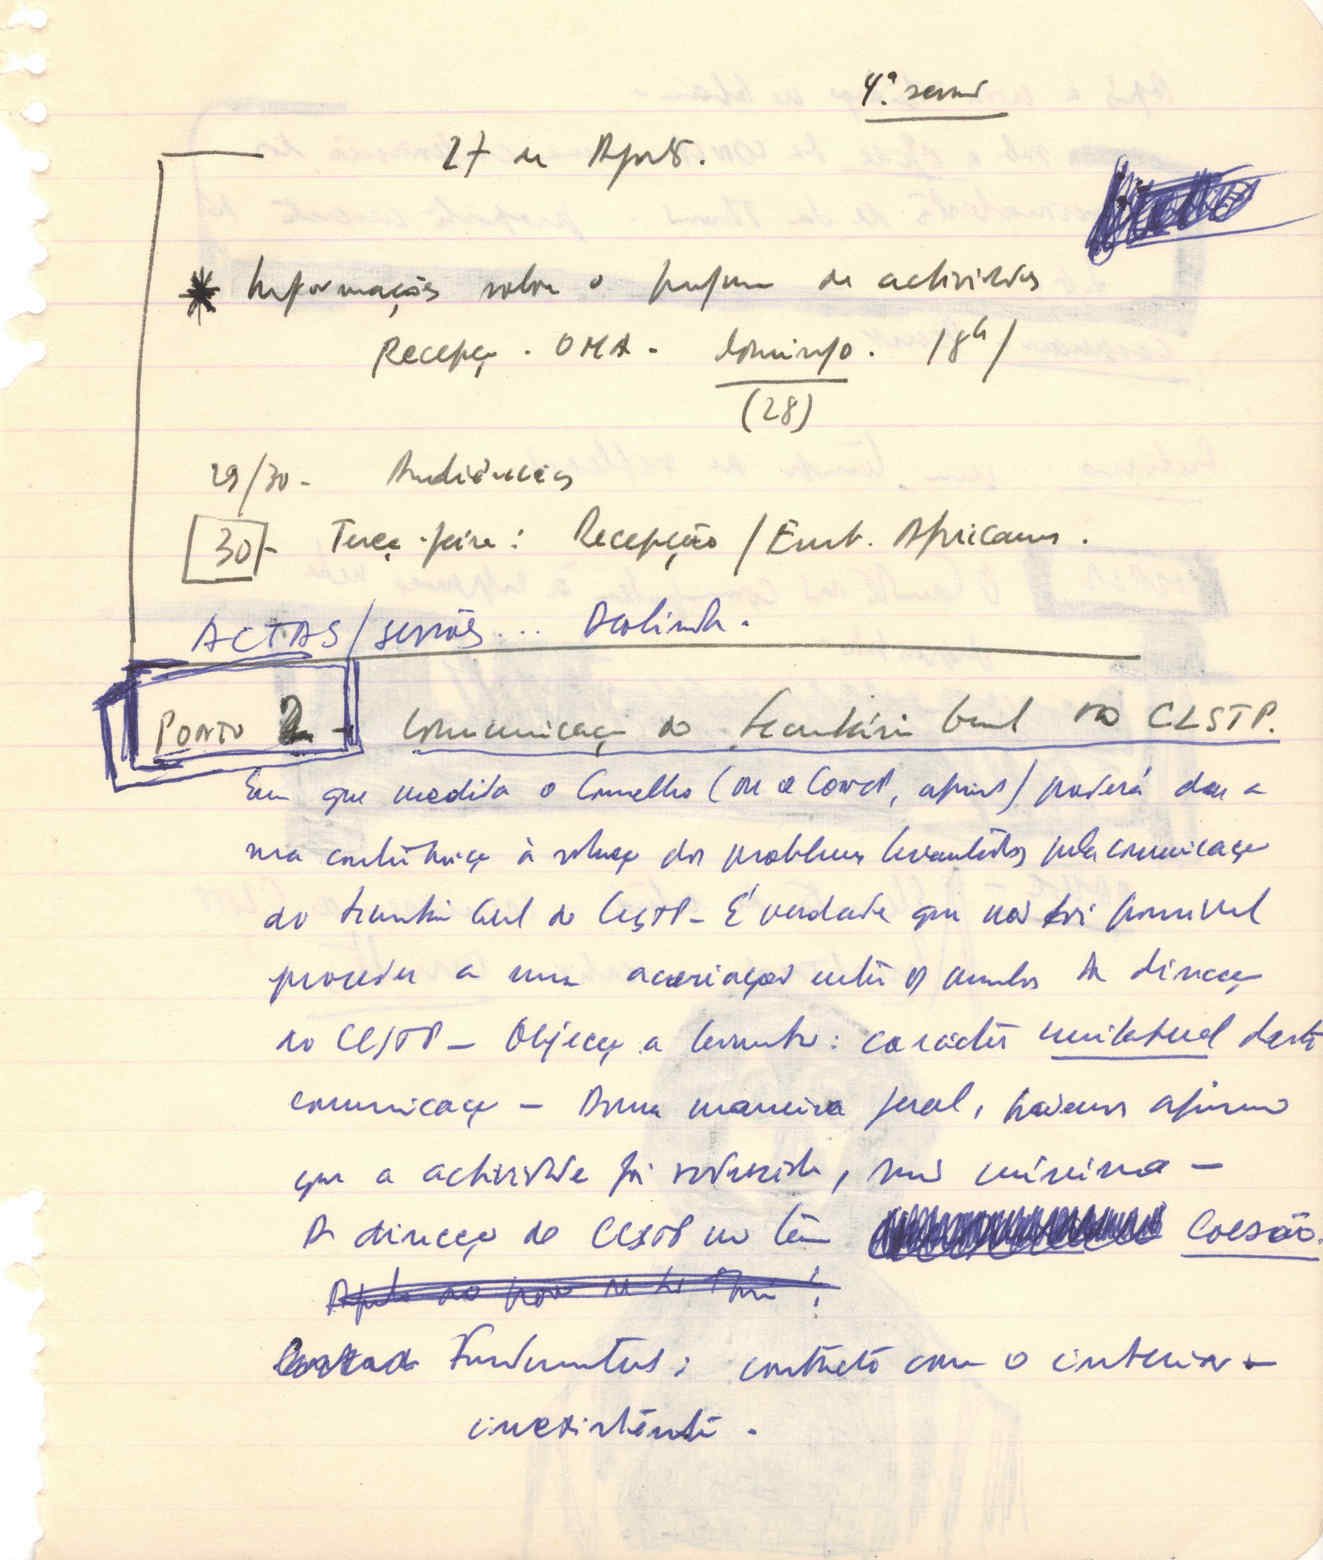 4.ª sessão
27 de Agost.
* Informações sobre o programa de actividades
Recepção. OMA. domingo. 18h/
(28)
29/30 - Audiências
30 - Terça-feira: Recepção / Emb. Africanos.
ACTAS / sessões ... Deolinda.
PONTO 2 - Comunicação do Secretário Geral do CLSTP.
Em que medida o Conselho (ou a CONCP, apenas) poderá dar a
sua contribuição à solução dos problemas levantados pela comunicação
do Secretário Geral do CLSTP - É verdade que não foi possível
proceder a uma acareação entre os membros da direcção
do CLSTP - Objecção a levantar: carácter unilateral desta
comunicação - Duma maneira geral, podemos afirmar
que a actividade foi reduzida, senão mínima -
A direcção do CLSTP não tem coesão.
Fundamental: contacto com o interior -
inexistente.